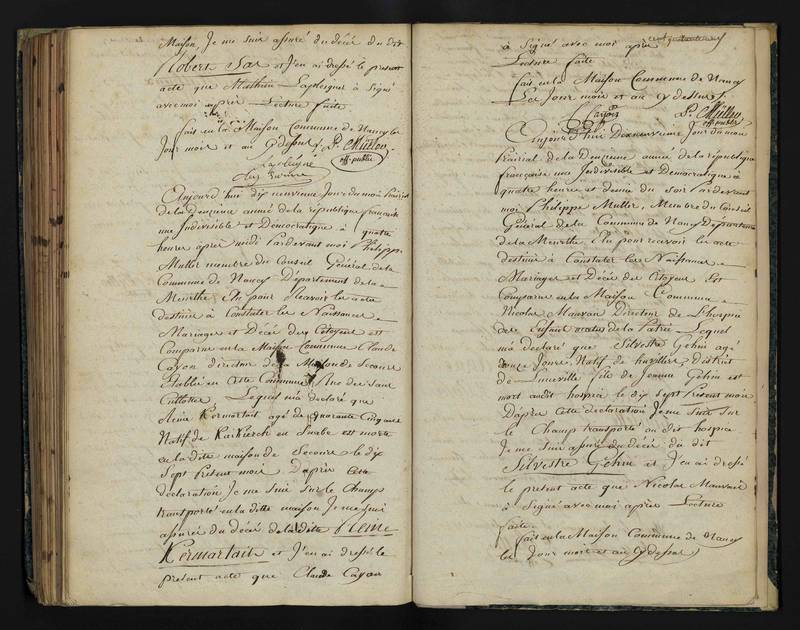 Maison, Je me suis assuré du décé du dit
Robert Sar et J'en ai dressé le present
acte que Mathieu Lapleigné à Signé
avec moi après Lecture faite
fait en la Maison Commune de Nancy les
Jour mois et an q dessus P. Mulley
off. public
Lapleigné
Aujourd'hui dix neuvieme Jour du mois Prairial
de la Deuxieme année de la république française
une Indivisible et Democratique à quatre
heures après midi Pardevant moi Philippe
Muller membre du Conseil Général de la
Commune de Nancy Département de la
Meurthe Elu pour Recevoir les acte
destinée à Constater les Naissances
Mariages et Décé des Citoyens est
Comparu en la Maison Commune Claude
Cayon directeur de la Maison de Secours
Etablie en Cette Commune Rue des Sans
Culottes Lequel m'a declaré que
Reine Kermartait agé de quarante Cinq ans
Natif de Kirkierch en Suabe est morte
en la dite maison de Secours le dix
Sept Présent mois D'après Cette
declaration Je me suis sur le Champ
transporté en la ditte maison Je me suis
assurée du décé de la ditte Reine
Kermartait et J'en ai dressé le
present acte que Claude Cayon
à Signé avec moi après
Lecture faite
fait en la Maison Commune de Nancy
Les Jour mois et an q dessus
Cayon P. Mulley
off. public
Aujourd'hui Dixneuvieme Jour du mois
Prairial de la Deuxieme année de la république
française une Indivisible et Democratique à
quatre heures et demie du Soir Pardevant
moi Philippe Muller, Membre du Conseil
Général de la Commune de Nancy Département
de la Meurthe, Elu pour recevoir les acte
destinée à Constater les Naissances
Mariages et Décé des Citoyens Est
Comparu en la Maison Commune
Nicolas Mauvais Directeur de L'hospice
des Enfans de la Patrie Lequel
m'a déclaré que Silvestre Géhin agé
Jours Natif de district
de Luneville fils de Jeanne Géhin est
mort audit hospice le dix Sept Présent mois
D'après Cette declaration Je me suis Sur
le Champ transporté au dit hospice
Je me suis assuré du décé du dit
Silvestre Géhin et J'en ai dressé
le présent acte que Nicolas Mauvais
à Signé avec moi après Lecture
faite
fait en la Maison Commune de Nancy
les Jour mois et an q dessus